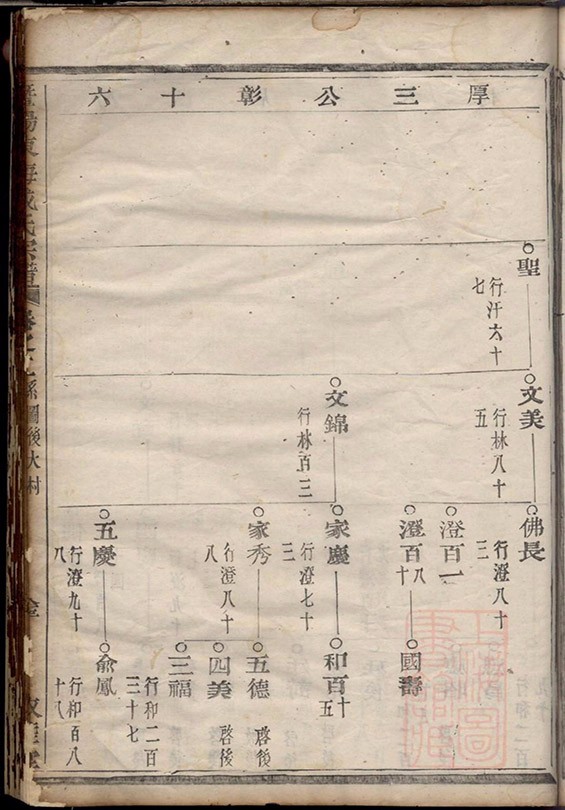 厚三公彰十六
聖
行汗六十七
文美
行林八十五
佛長
行澄八十三
澄百一
澄百十八
國壽
文錦
行林百三
家慶
行澄七十三
和百十五
家秀
行澄八十八
五德
啓後
四美
啓後
三福
行和二百三十七
五慶
行澄九十八
俞鳳
行和百八十八
宗譜
系圖後大村